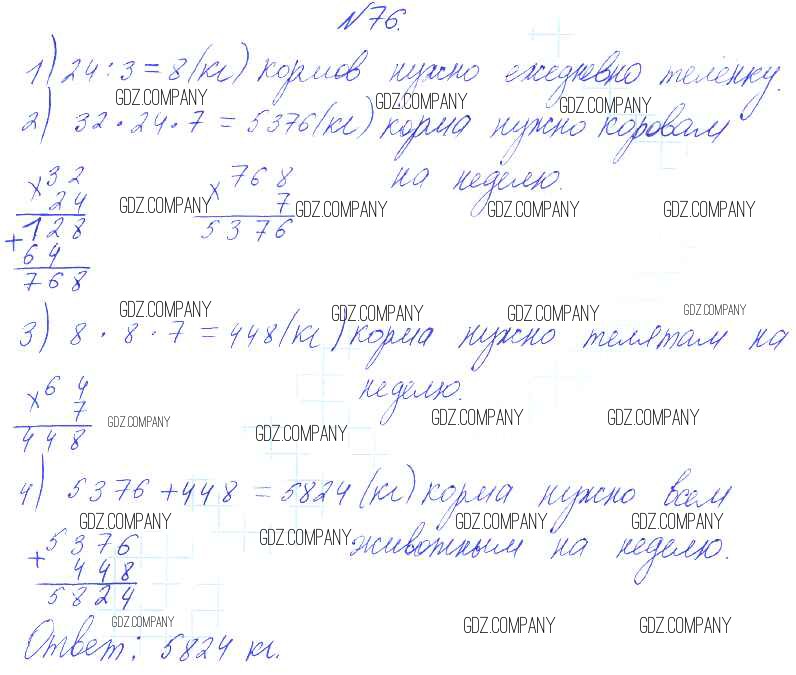 №76.
1) 24 : 3 = 8 (кг) кормов нужно ежедневно теленку.
GDZ.COMPANY GDZ.COMPANY GDZ.COMPANY
2) 32 · 24 · 7 = 5376 (кг) корма нужно коровам
на неделю.
× 32
24
GDZ.COMPANY
+ 128
64
768
× 768
7
5376
GDZ.COMPANY GDZ.COMPANY GDZ.COMPANY
GDZ.COMPANY GDZ.COMPANY GDZ.COMPANY GDZ.COMPANY
3) 8 · 8 · 7 = 448 (кг) корма нужно телятам на
неделю.
× 64
7
448
GDZ.COMPANY GDZ.COMPANY GDZ.COMPANY GDZ.COMPANY
4) 5376 + 448 = 5824 (кг) корма нужно всем
GDZ.COMPANY GDZ.COMPANY GDZ.COMPANY GDZ.COMPANY
животным на неделю.
+ 5376
448
5824
GDZ.COMPANY GDZ.COMPANY GDZ.COMPANY
Ответ: 5824 кг.